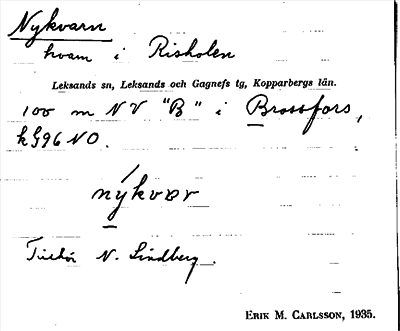 Nykvarn
kvarn i Risholen
Leksands sn, Leksands och Gagnefs tg, Kopparbergs län.
100 m NV "B" i Brossfors,
k 996 NO.
nýkvɒr
Tillhör N. Lindberg.
ERIK M. CARLSSON, 1935.